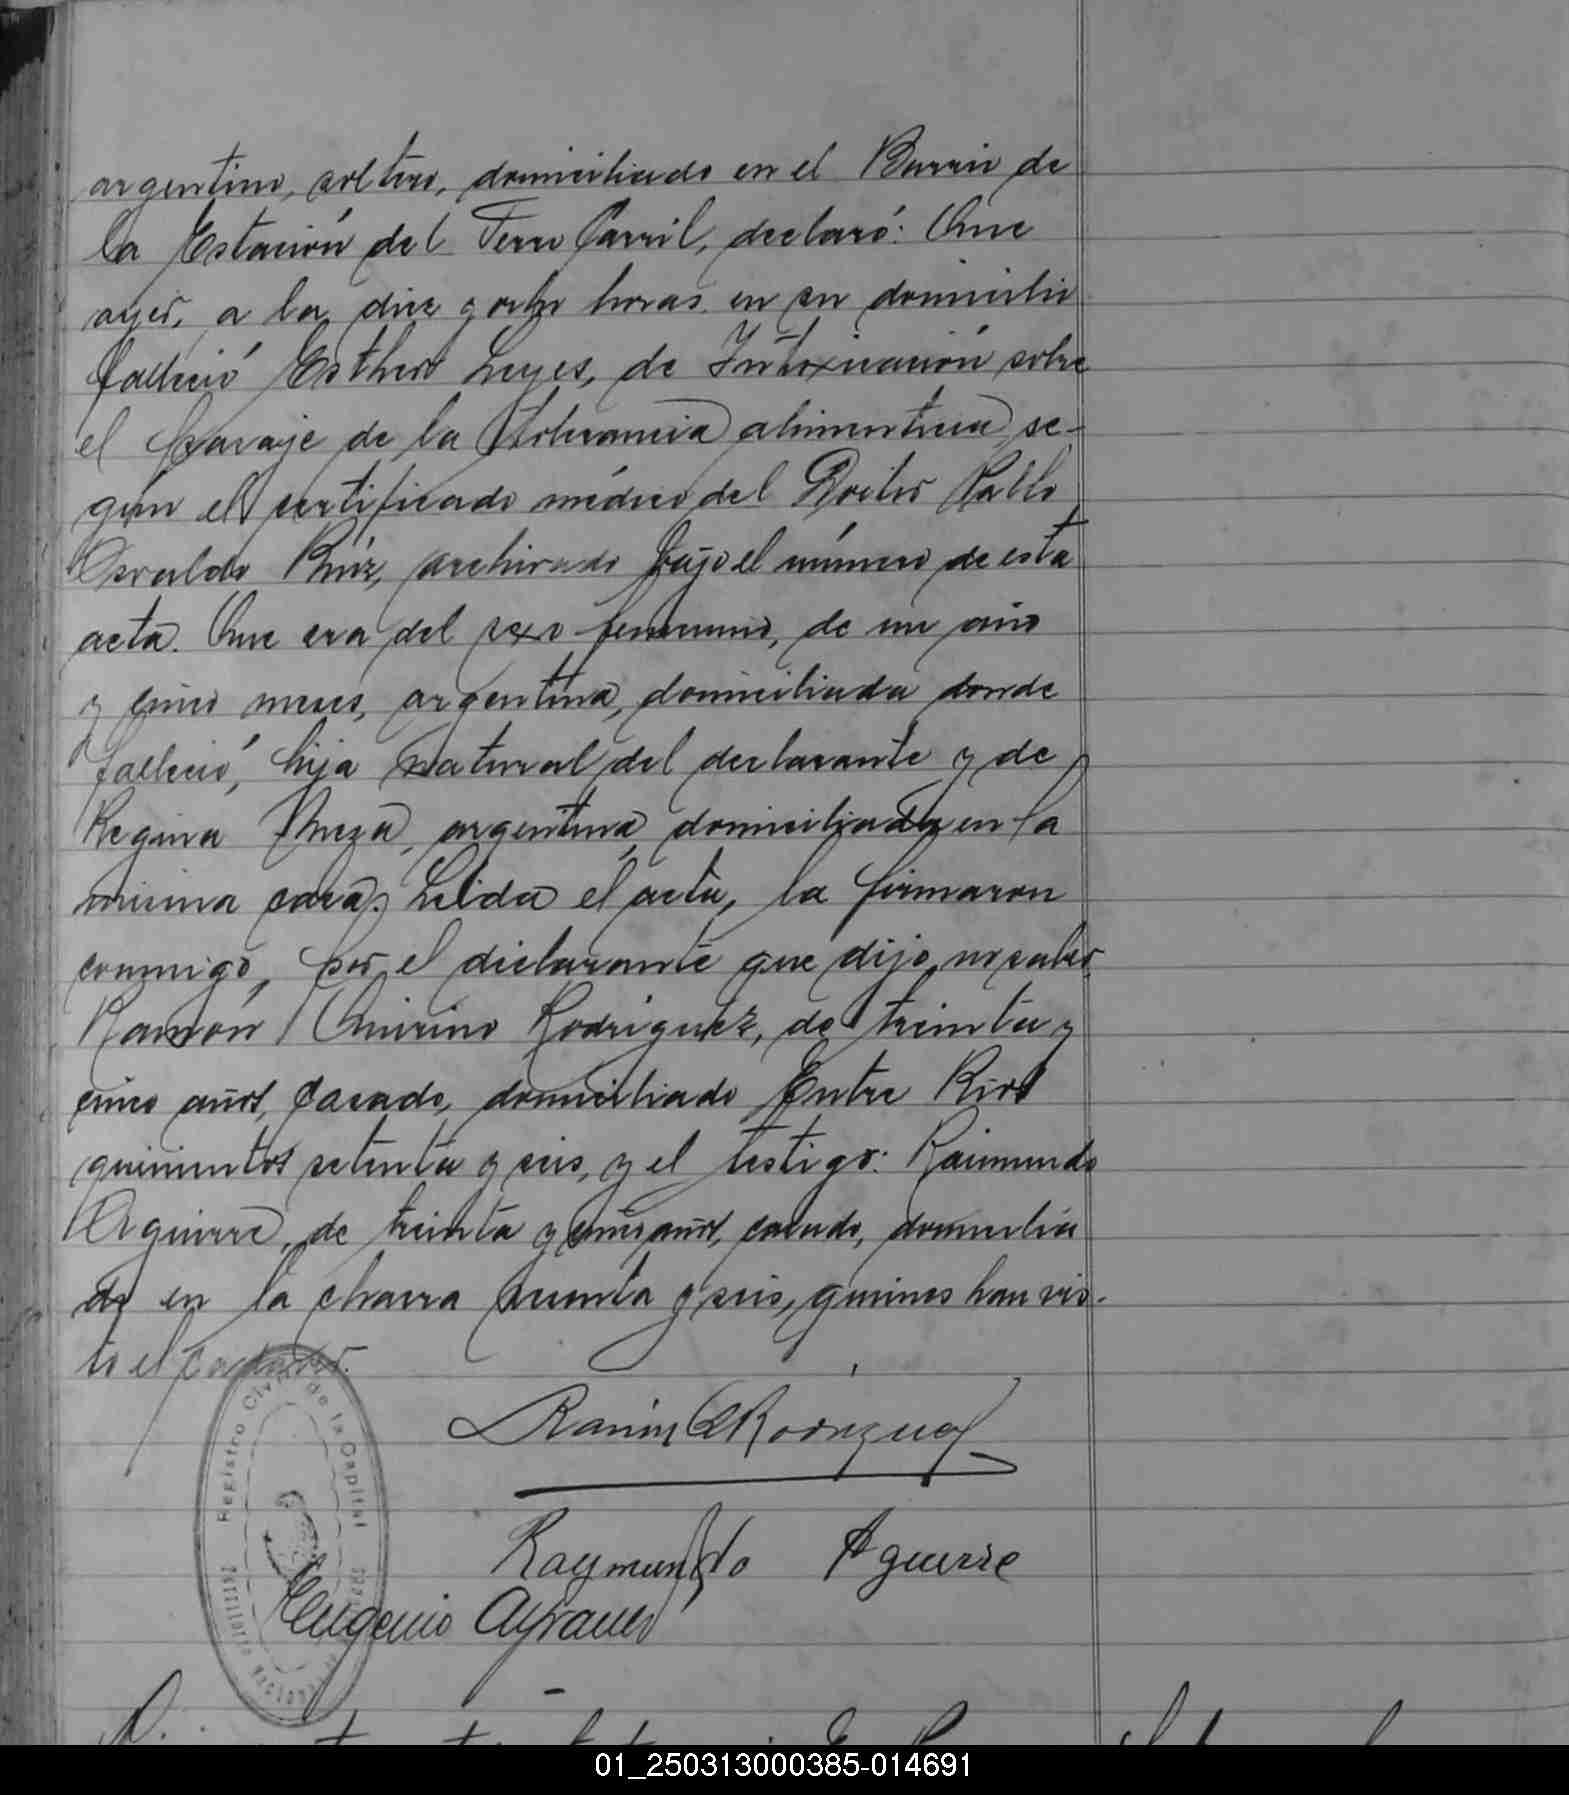 argentino, soltero, domiciliado en el Barrio de
la Estación del Ferro Carril, declaró: Que
ayer, a las diez y ocho horas en su domicilio
falleció Esther Leyes, de Intoxicación sobre
el de la tolerancia alimenticia, se-
gún el certificado médico del Doctor Pablo
Osvaldo Ruiz, archivado bajo el número de esta
acta. Que era del sexo femenino, de un año
y cinco meses, argentina, domiciliada donde
falleció, hija natural del declarante y de
Regina argentina, domiciliada en la
misma casa. Leída el acta, la firmaron
conmigo, por el declarante que dijo no saber
Ramón Quirino Rodriguez, de treinta y
cinco años, casado, domiciliado Entre Rios
quinientos setenta y seis, y el testigo: Raimundo
Aguirre, de treinta y años, casado, domicilia
do en la chacra y seis, quienes han vis-
to el cadaver.
Ramón Q Rodriguez
Raymundo Aguirre
Eugenio
Registro Civil de la Capital
01_250313000385-014691